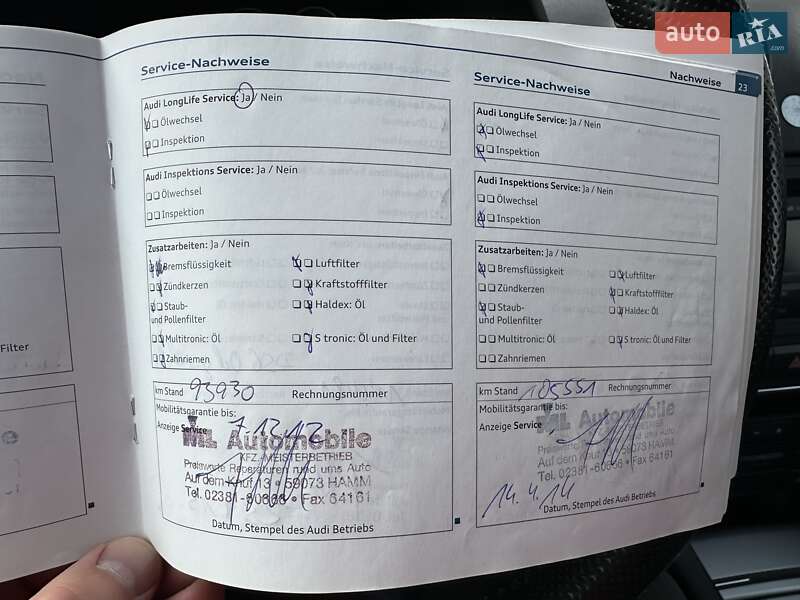 auto RIA .com
Nachweise 23
Service-Nachweise
Audi LongLife Service: Ja / Nein
Ölwechsel
Inspektion
Audi Inspektions Service: Ja / Nein
Ölwechsel
Inspektion
Zusatzarbeiten: Ja / Nein
Bremsflüssigkeit
Luftfilter
Zündkerzen
Kraftstofffilter
Staub-
und Pollenfilter
Haldex: Öl
Multitronic: Öl
S tronic: Öl und Filter
Zahnriemen
km Stand 93930 Rechnungsnummer
Mobilitätsgarantie bis:
Anzeige Service 7.12.12
ML Automobile
KFZ.-MEISTERBETRIEB
Preiswerte Reparaturen rund ums Auto
Auf dem Knuf 13 • 59073 HAMM
Tel. 02381-60868 • Fax 64161
Datum, Stempel des Audi Betriebs
Service-Nachweise
Audi LongLife Service: Ja / Nein
Ölwechsel
Inspektion
Audi Inspektions Service: Ja / Nein
Ölwechsel
Inspektion
Zusatzarbeiten: Ja / Nein
Bremsflüssigkeit
Luftfilter
Zündkerzen
Kraftstofffilter
Staub-
und Pollenfilter
Haldex: Öl
Multitronic: Öl
S tronic: Öl und Filter
Zahnriemen
km Stand 105551 Rechnungsnummer
Mobilitätsgarantie bis:
Anzeige Service
ML Automobile
14.4.14
Datum, Stempel des Audi Betriebs
Filter